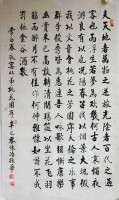 夫天地者萬物之逆旅光陰者百代之過
客也而浮生若夢為歡幾何古人秉燭夜
遊良有以也況陽春召我以煙景大塊假
我以文章會桃花之芳園序天倫之樂事
群季俊秀皆為惠連吾人詠歌獨慚康樂
幽賞未已高談轉清開瓊筵以坐花飛羽
觴而醉月不有佳作何伸雅懷如詩不成
罰依金谷酒數
李白春夜宴從弟桃花園序